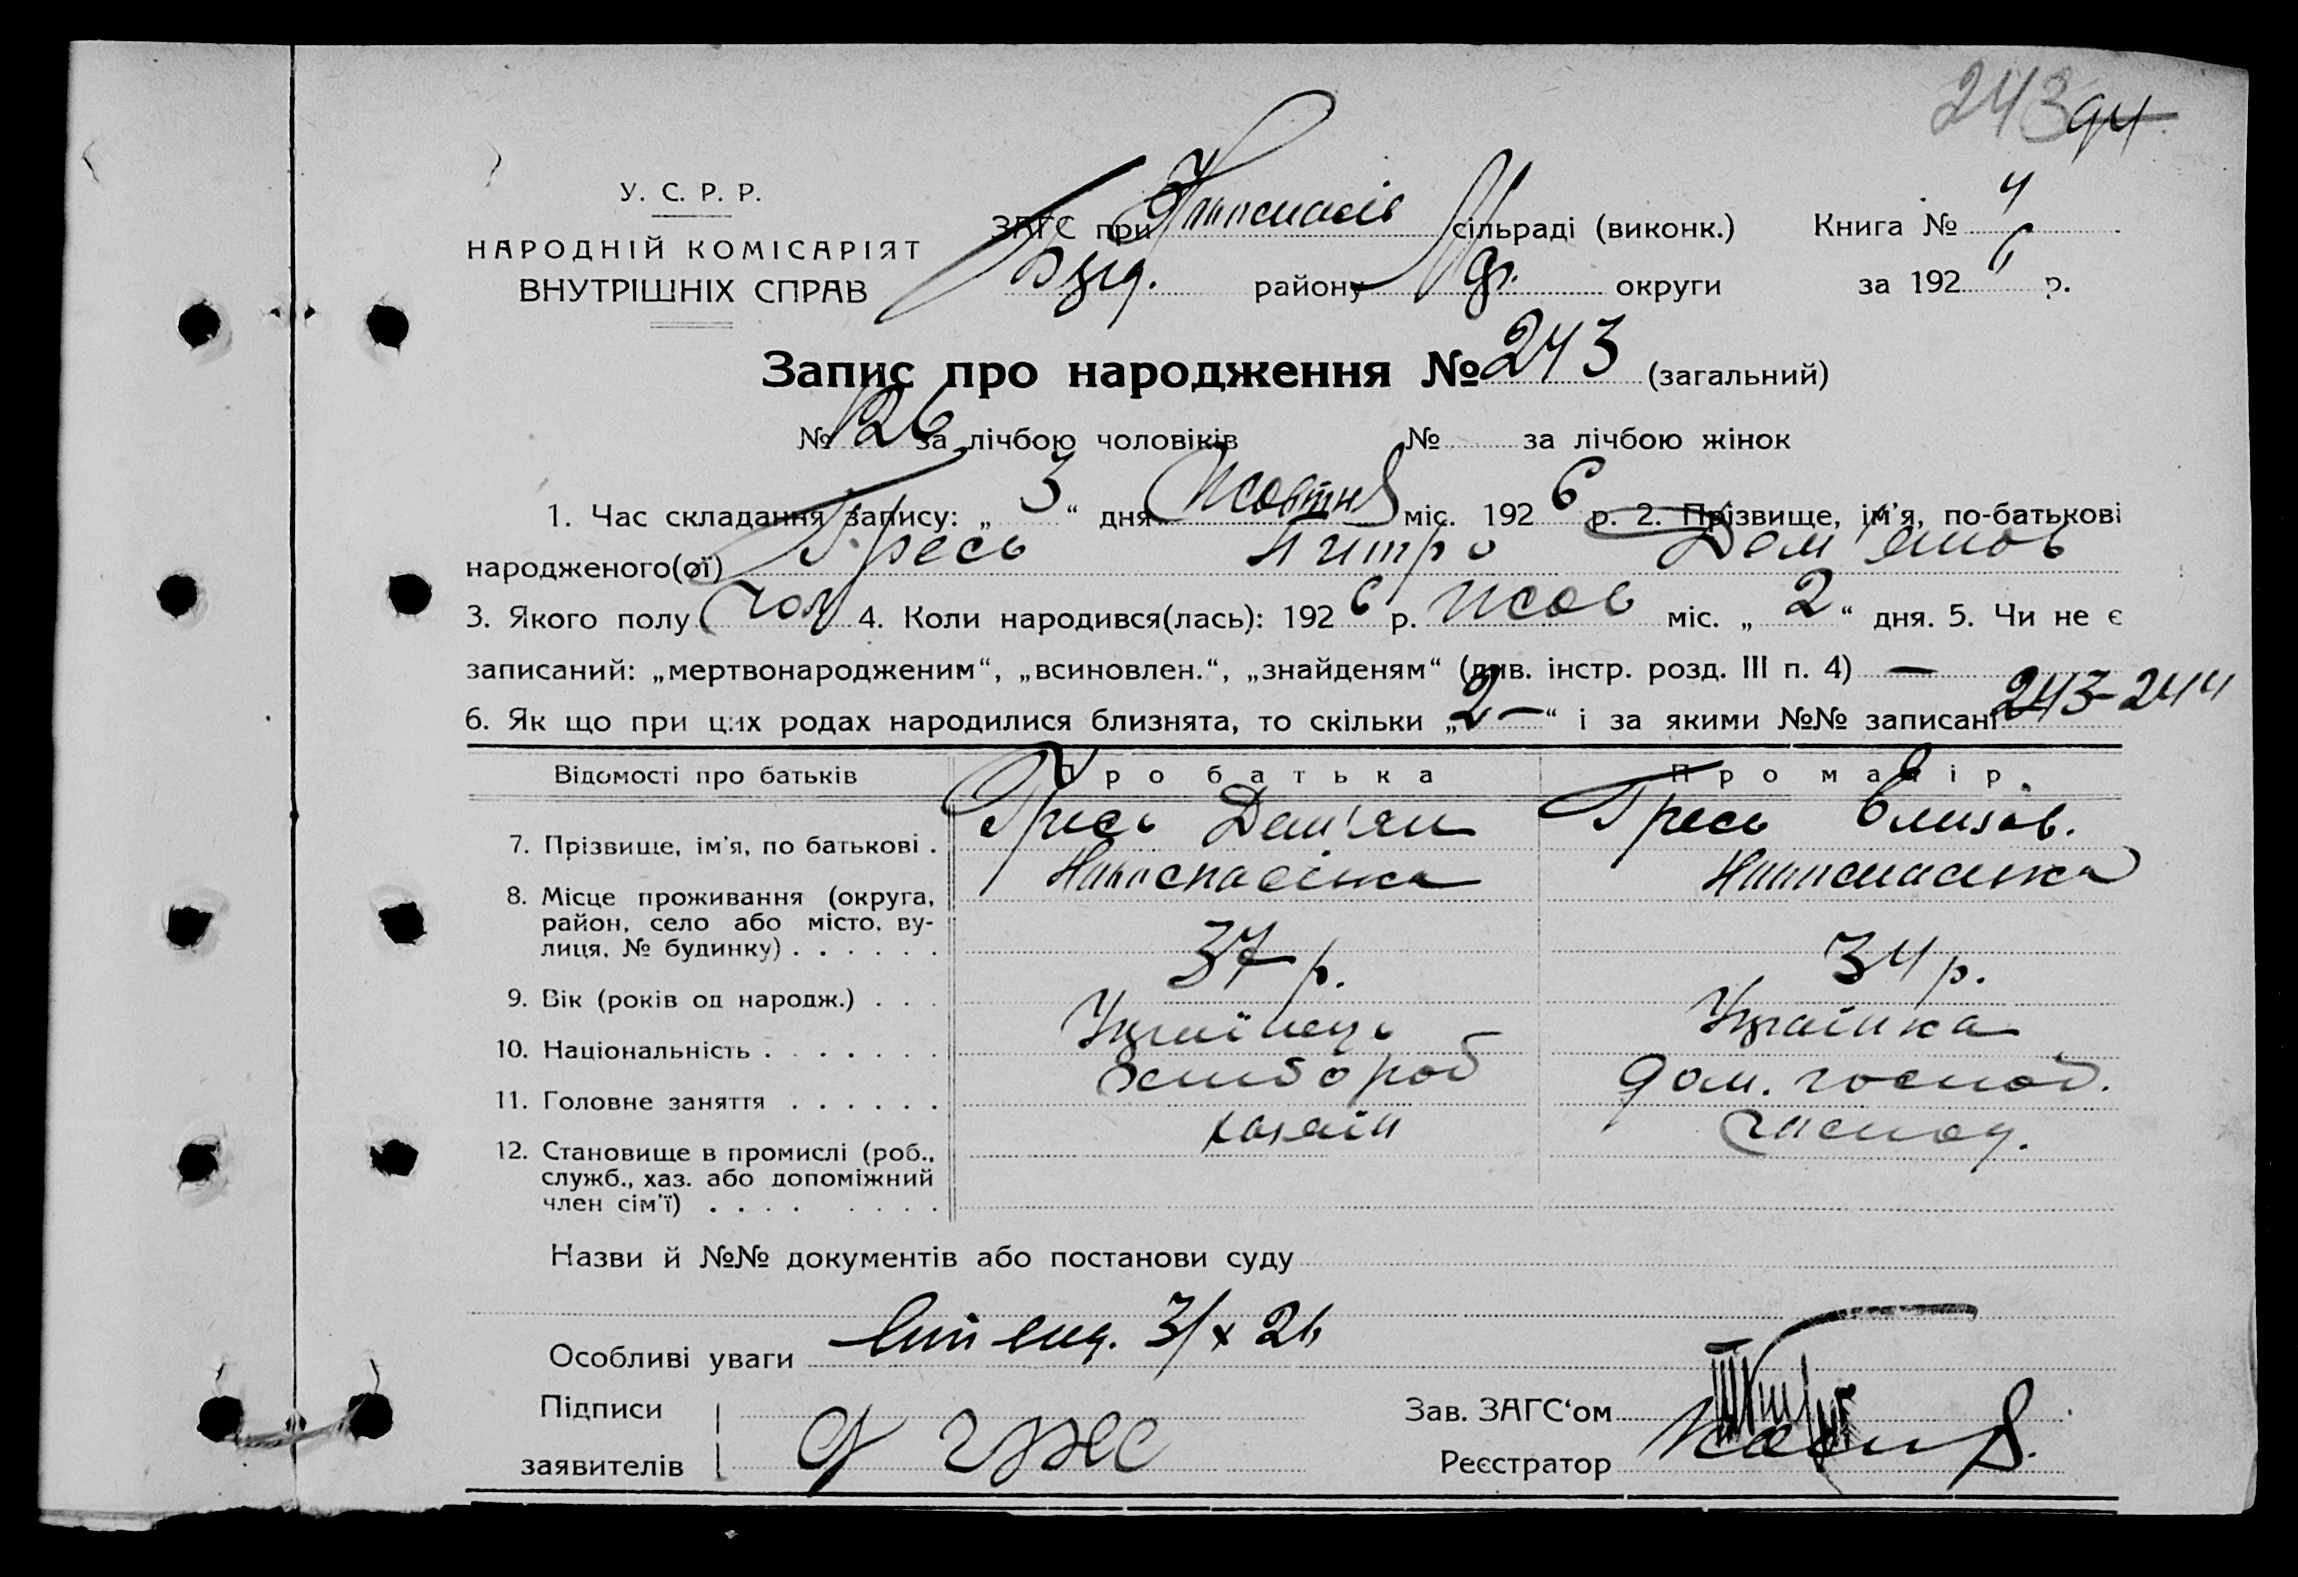 243 94
У. С. Р. Р.
НАРОДНІЙ КОМІСАРІЯТ
ВНУТРІШНІХ СПРАВ
ЗАГС при сільраді (виконк.) Книга № 4
району округи за 1926 р.
Запис про народження № 243 (загальний)
№ 126 за лічбою чоловіків № за лічбою жінок
1. Час складання запису: „3“ дня Жовтня міс. 1926 р. 2. Прізвище, ім'я, по-батькові
народженого(ої) Гресь Дем'янов
3. Якого полу чол 4. Коли народився(лась): 1926 р. Жов міс. „2“ дня. 5. Чи не є
записаний: „мертвонародженим“, „всиновлен.“, „знайденям“ (див. інстр. розд. III п. 4) —
6. Як що при цих родах народилися близнята, то скільки „2 —“ і за якими №№ записані 243-244
Відомості про батьків Про батька Про матір
7. Прізвище, ім'я, по батькові . Гресь Дем'ян Гресь Єлизав.
8. Місце проживання (округа,
район, село або місто, ву-
лиця, № будинку) . . . . . .
9. Вік (років од народж.) . . . 37 р. 34 р.
10. Національність . . . . . . . Українець Українка
11. Головне заняття . . . . . . хлібороб дом. господ.
12. Становище в промислі (роб., хазяїн господ.
служб., хаз. або допоміжний
член сім'ї) . . . . . . . .
Назви й №№ документів або постанови суду
Особливі уваги 3/X 26
Підписи Зав. ЗАГС'ом
заявителів Реєстратор